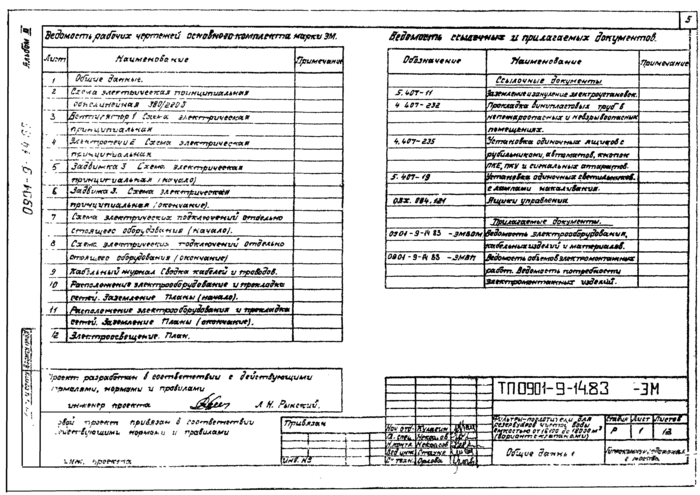 5
Альбом III
0901-9-14.83
Ведомость рабочих чертежей основного комплекта марки ЭМ.
Лист Наименование Примечание
1 Общие данные.
2 Схема электрическая принципиальная
однолинейная 380/220В
3 Вентилятор 1 Схема электрическая
принципиальная
4 Схема электрическая
принципиальная
5 Задвижка 3. Схема электрическая
принципиальная (начало)
6 Задвижка 3. Схема электрическая
принципиальная (окончание).
7 Схема электрических подключений отдельно
стоящего оборудования (начало).
8 Схема электрических подключений отдельно
стоящего оборудования (окончание)
9 Кабельный журнал Сводка кабелей и проводов.
10 Расположение электрооборудования и прокладка
сетей. Заземление Планы (начало).
11 Расположение электрооборудования и прокладка
сетей. Заземление Планы (окончание).
12 Электроосвещение. План.
Ведомость ссылочных и прилагаемых документов.
Обозначение Наименование Примечание
Ссылочные документы
5.407-11 Заземление и зануление электроустановок.
4.407-232 Прокладка винипластовых труб в
непожароопасных и невзрывоопасных
помещениях.
4.407-235 Установка одиночных ящиков с
рубильниками, автоматов, кнопок
ПКЕ, ПКУ и сигнальных аппаратов.
5.407-19 Установка одиночных светильников
с лампами накаливания.
Ящики управления
Прилагаемые документы.
0901-9-14.83 -ЭМВОМ Ведомость электрооборудования,
кабельных изделий и материалов.
0901-9-14.83 -ЭМВП Ведомость объемов электромонтажных
работ. Ведомость потребности
электромонтажных изделий.
Проект разработан в соответствии с действующими
нормами и правилами
инженер проекта Л.Н. Ринский.
проект привязан в соответствии
действующим нормам и правилам
инж. проекта
Привязан
Инв. №
ТП0901-9-14.83 -ЭМ
Нач. отд. Кулагин
Гл. спец. Некрасов
Н. контр. Некрасов
Вед. инж.
Ст. техн. Орлова
Фильтры-поглотители для
резервуаров чистой воды
емкостью от до м³
(вариант с клапанами)
Стадия Лист Листов
Р 1 12
Общие данные
г. Москва